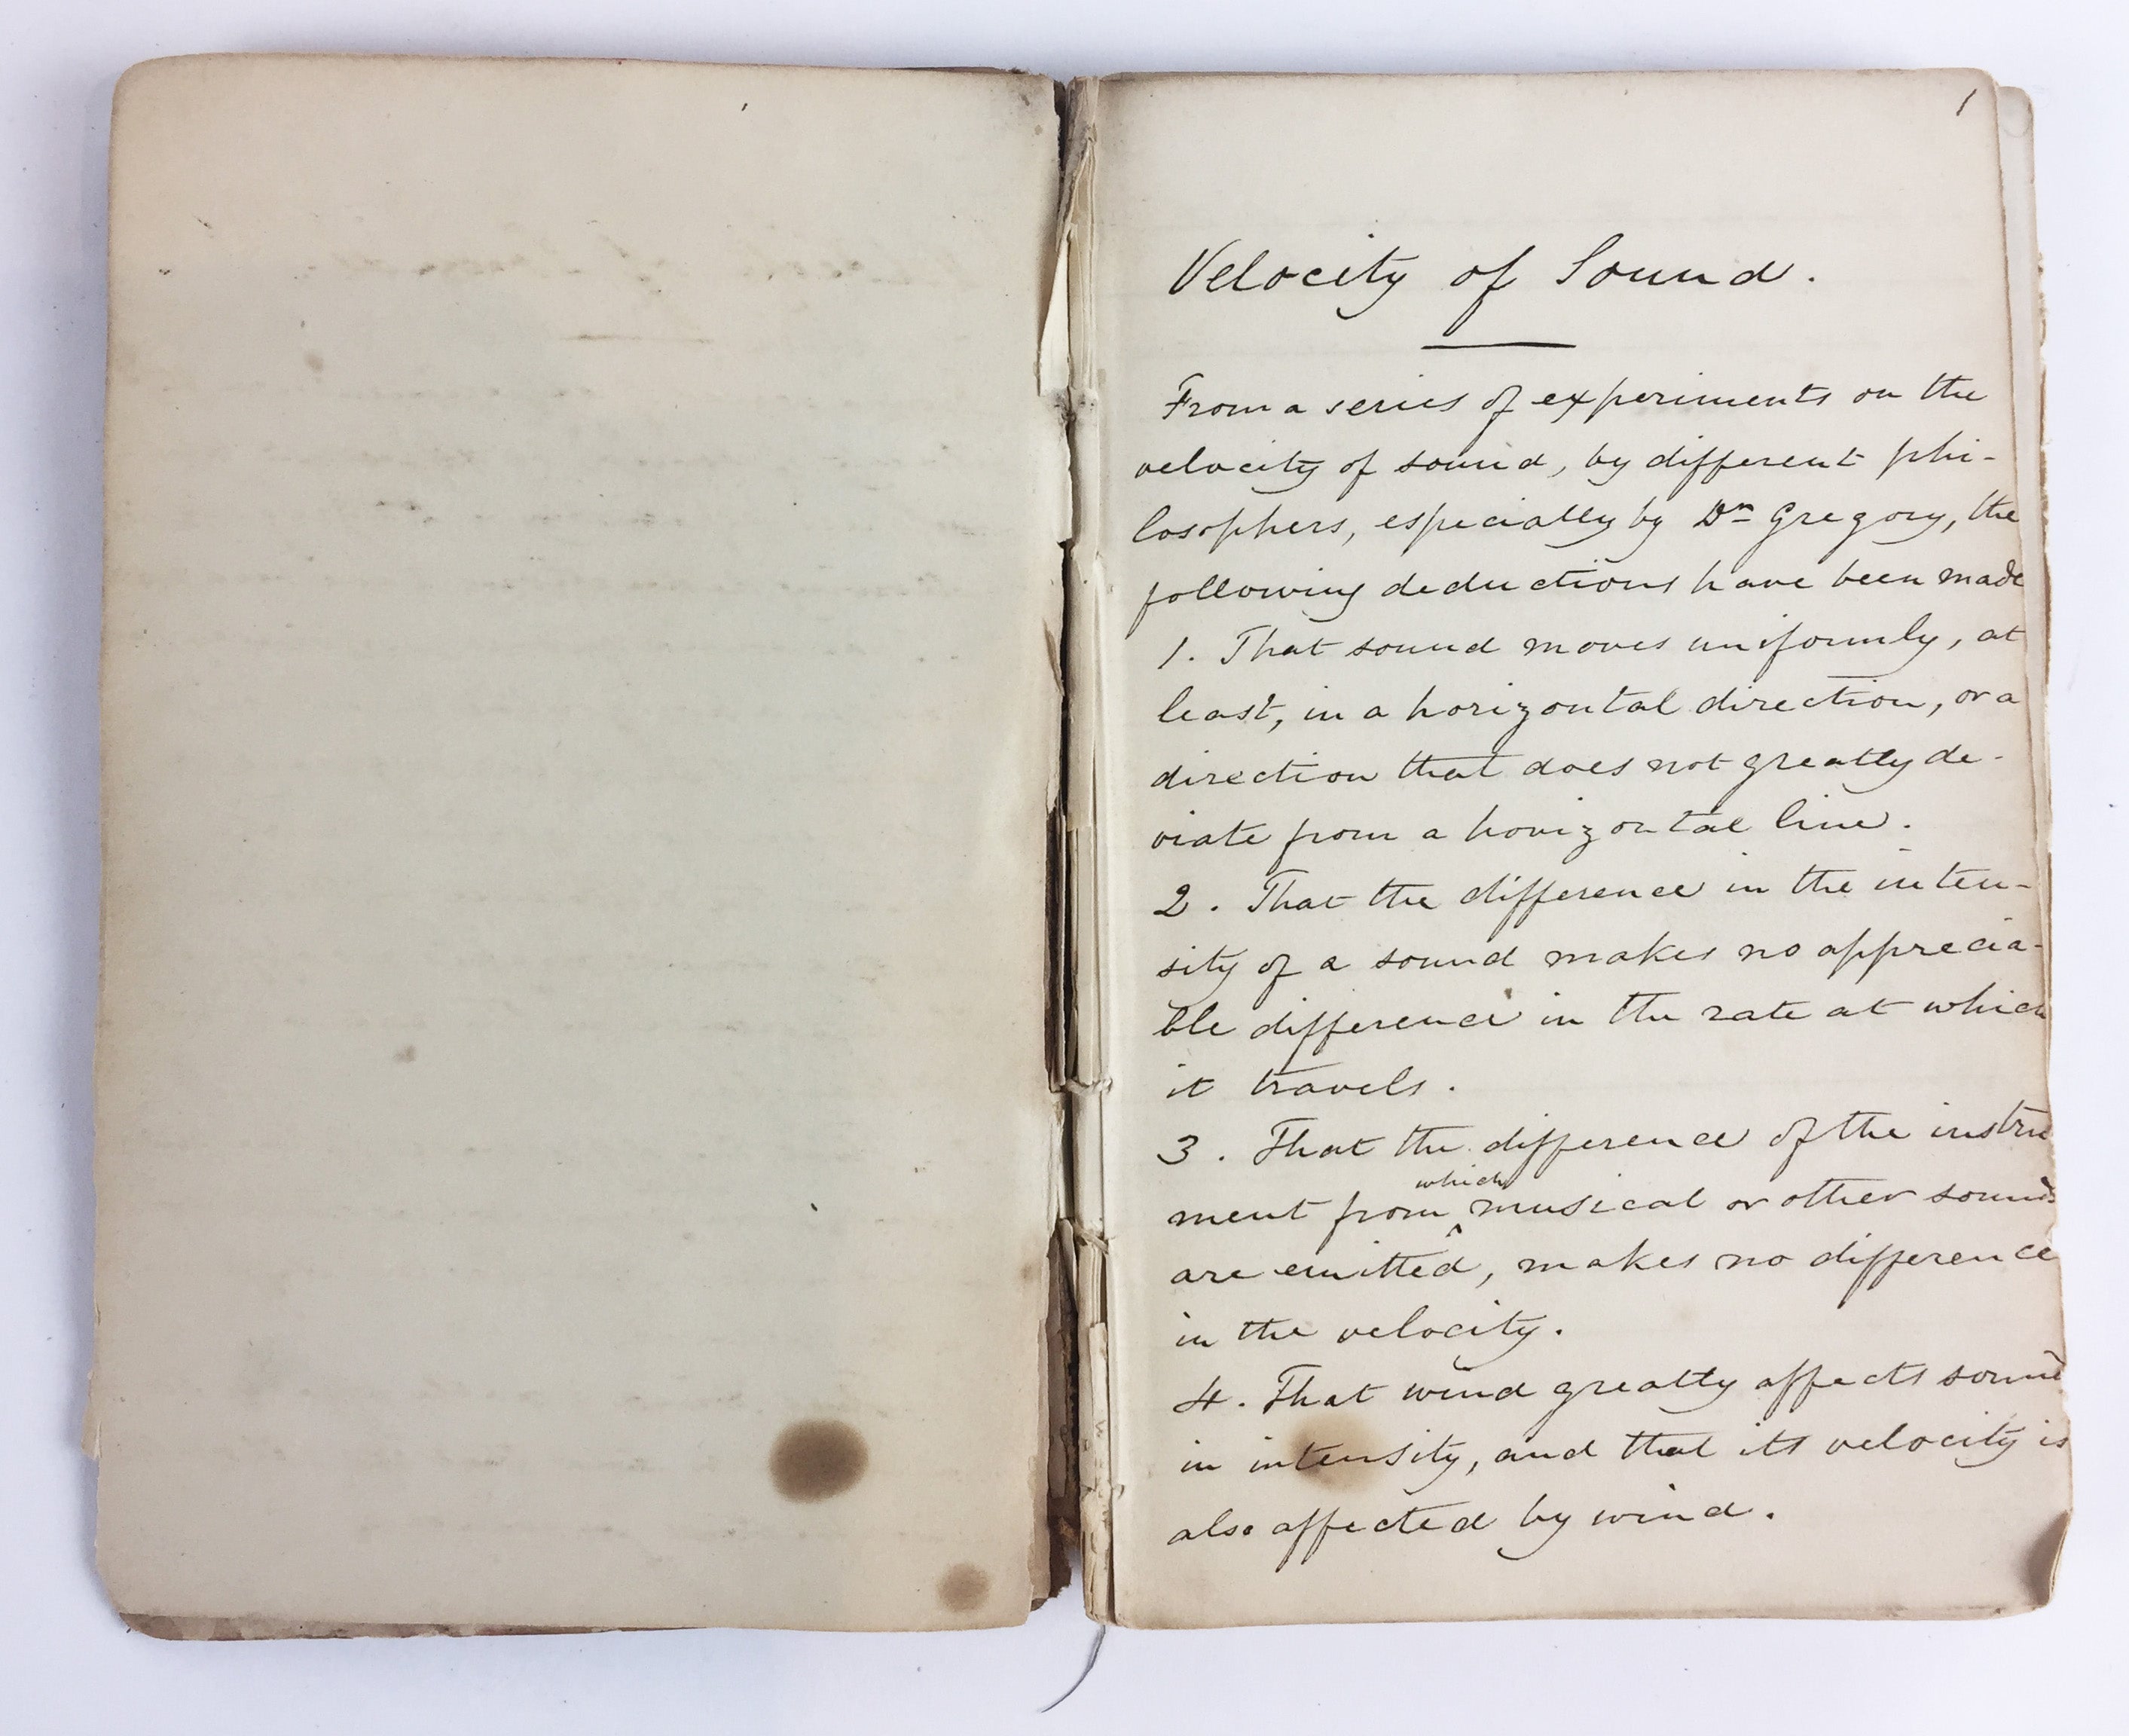 1
Velocity of Sound.
From a series of experiments on the
velocity of sound, by different phi-
losophers, especially by Dr Gregory, the
following deductions have been made
1. That sound moves uniformly, at
least, in a horizontal direction, or a
direction that does not greatly de-
viate from a horizontal line.
2. That the difference in the inten-
sity of a sound makes no apprecia-
ble difference in the rate at which
it travels.
3. That the difference of the instru
which
ment from ^ musical or other sounds
are emitted, makes no difference
in the velocity.
4. That wind greatly affects sound
in intensity, and that its velocity is
also affected by wind.